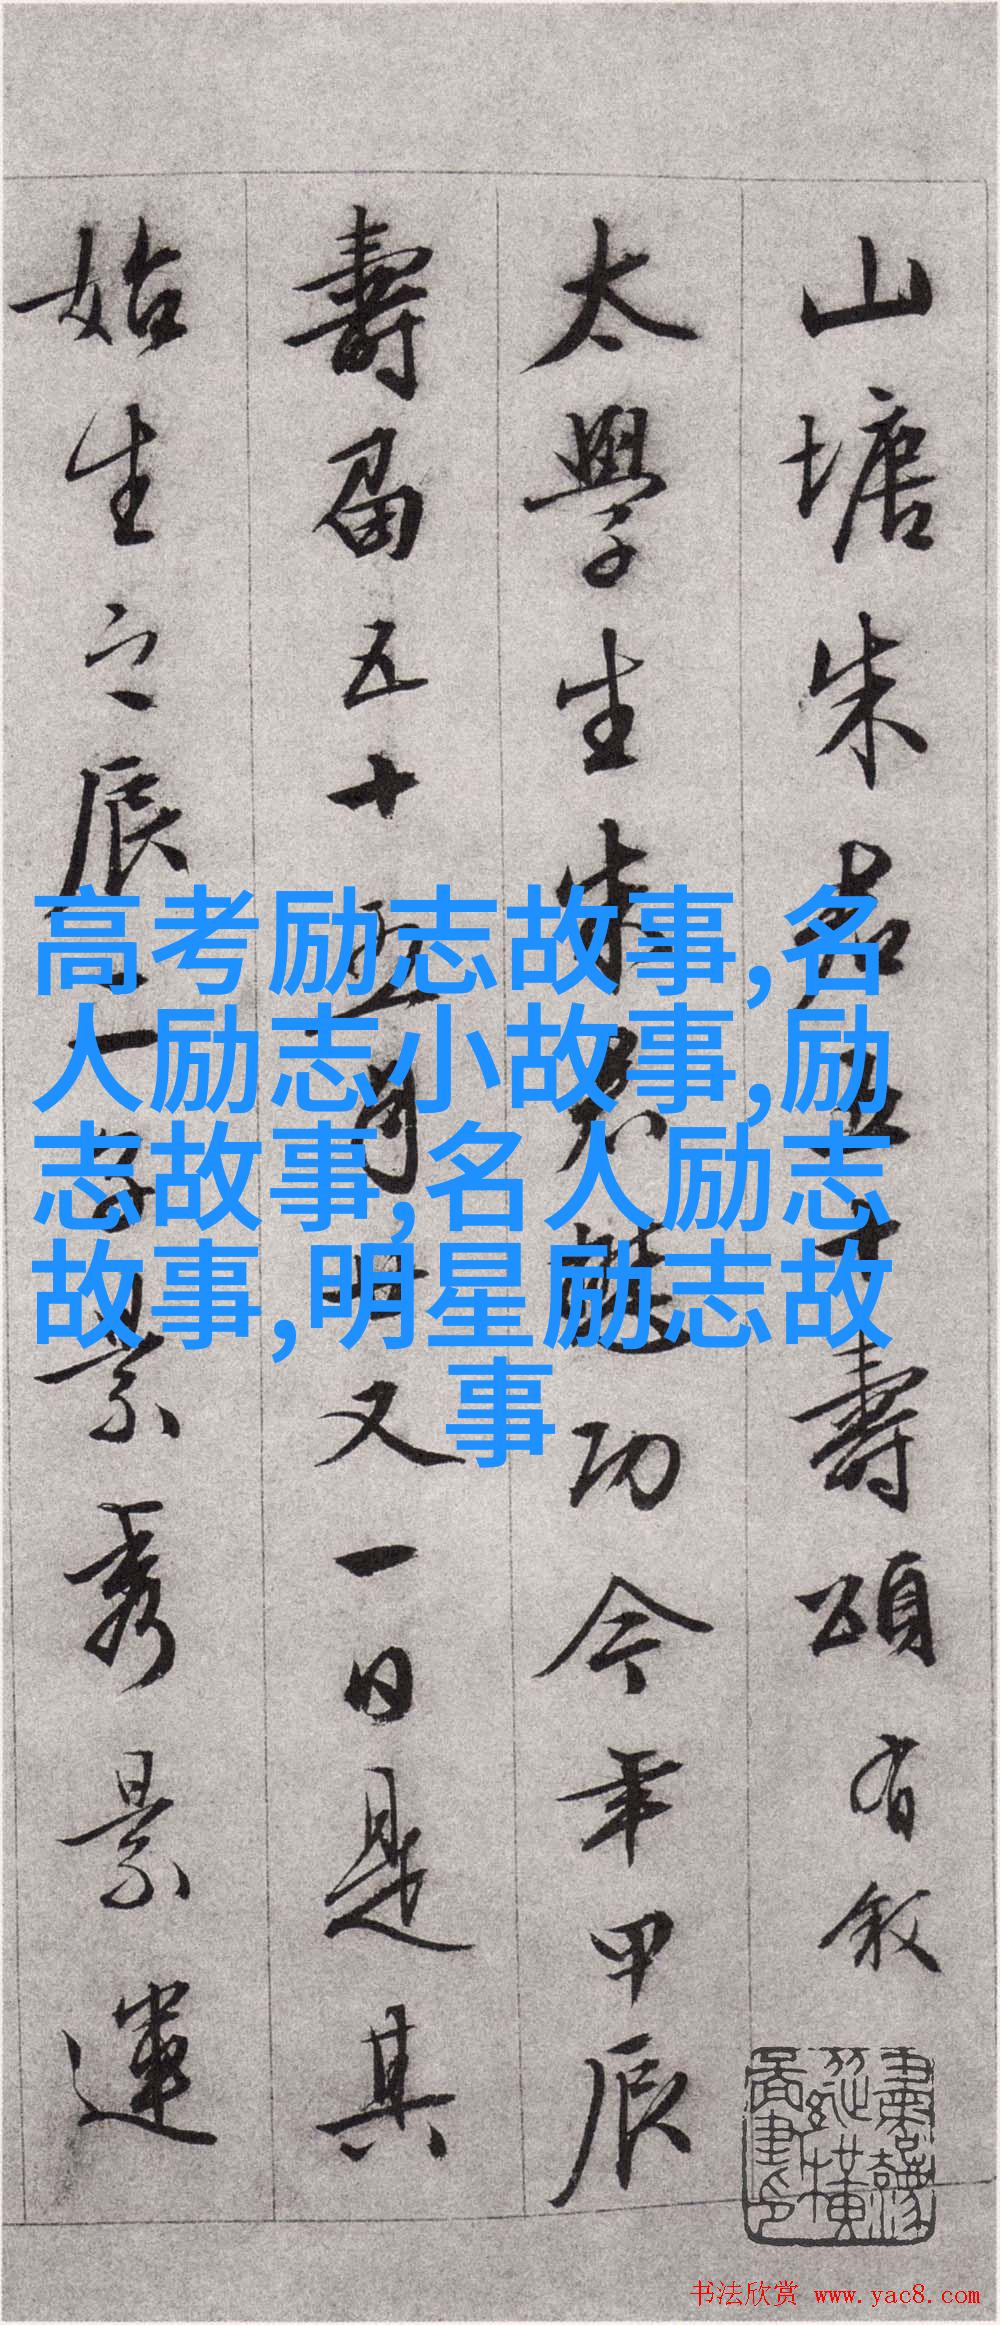 山塘朱君五十壽頌 有敘
太學生朱君 功今年甲辰
壽届五十 五月廿又一日是其
始生之辰 景秀景運
高考励志故事,名
人励志小故事,励
志故事,名人励志
故事,明星励志故
事
书法欣赏 www.yac8.com